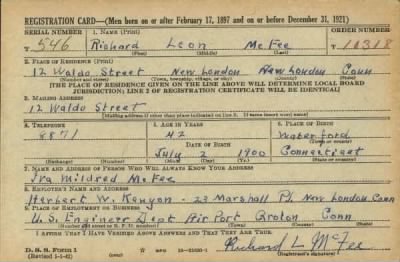 REGISTRATION CARD—(Men born on or after February 17, 1897 and on or before December 31, 1921)
SERIAL NUMBER 1. NAME (Print) ORDER NUMBER
T 546 Richard Leon McFee 10318
(First) (Middle) (Last)
2. PLACE OF RESIDENCE (Print)
12 Waldo Street New London New London Conn
(Number and street) (Town, township, village, or city) (County) (State)
[THE PLACE OF RESIDENCE GIVEN ON THE LINE ABOVE WILL DETERMINE LOCAL BOARD
JURISDICTION; LINE 2 OF REGISTRATION CERTIFICATE WILL BE IDENTICAL]
3. MAILING ADDRESS
12 Waldo Street
[Mailing address if other than place indicated on line 2. If same insert word same]
4. TELEPHONE 5. AGE IN YEARS 6. PLACE OF BIRTH
8871 42 Waterford
DATE OF BIRTH (Town or county)
July 2 1900 Connecticut
(Exchange) (Number) (Mo.) (Day) (Yr.) (State or country)
7. NAME AND ADDRESS OF PERSON WHO WILL ALWAYS KNOW YOUR ADDRESS
Iva Mildred McFee
8. EMPLOYER'S NAME AND ADDRESS
Herbert W. Kenyon - 23 Marshall Pl. New London Conn
9. PLACE OF EMPLOYMENT OR BUSINESS
U.S. Engineer Dept Air Port Groton Conn
(Number and street or R. F. D. number) (Town) (County) (State)
I AFFIRM THAT I HAVE VERIFIED ABOVE ANSWERS AND THAT THEY ARE TRUE.
D. S. S. Form 1
(Revised 4-1-42) Richard L McFee
(Registrant's signature)